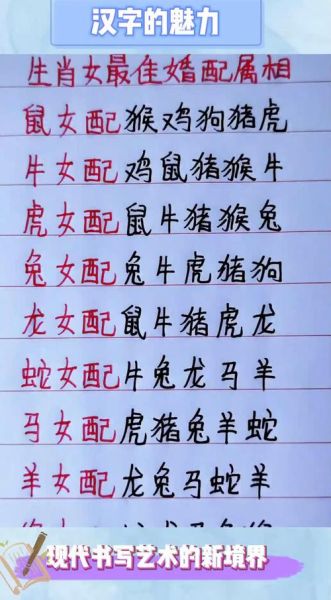 汉字的魅力
生肖女最佳婚配属相
鼠女配猴鸡狗猪虎
牛女配鸡鼠猪猴牛
虎女配鼠牛猪猴兔
兔女配兔牛虎猪狗
龙女配鼠牛猪虎龙
蛇女配牛兔龙马羊
马女配虎猪兔羊蛇
羊女配龙兔马蛇羊
现代书写艺术的新境界